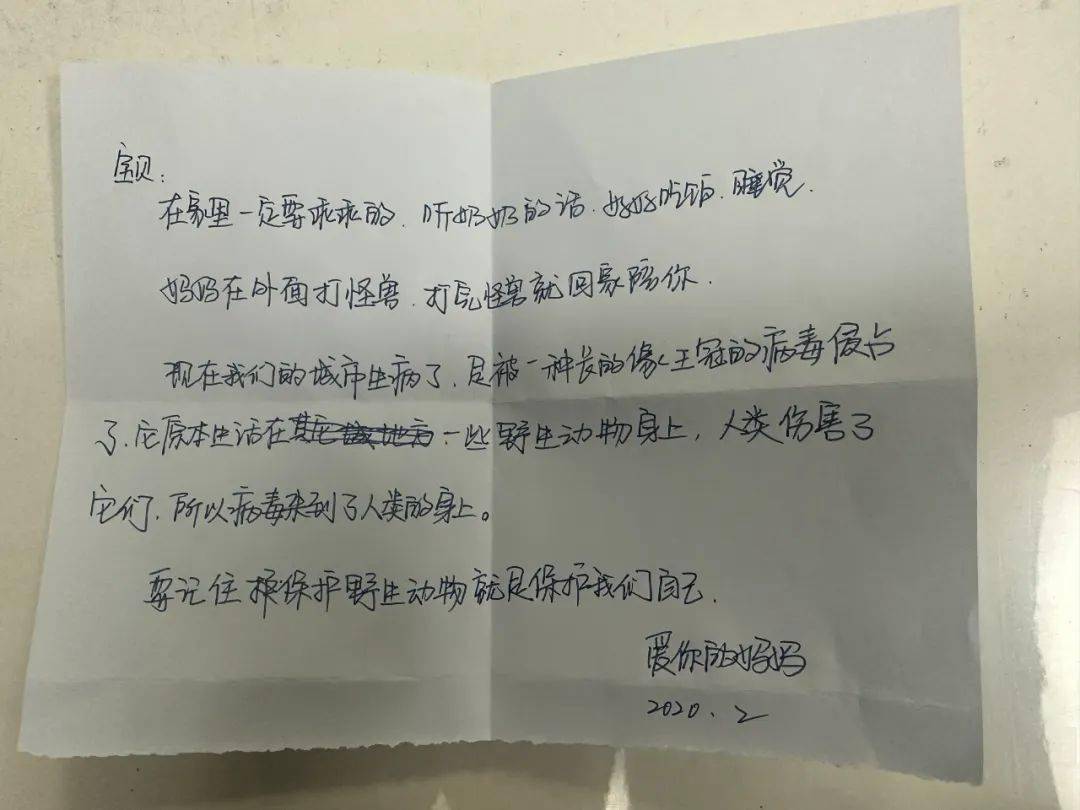 宝贝：
在家里一定要乖乖的．听奶奶的话．好好吃饭．睡觉．
妈妈在外面打怪兽．打完怪兽就回家陪你．
现在我们的城市生病了．是被一种长的像王冠的病毒侵占
了．它原本生活在一些野生动物身上，人类伤害了
它们．所以病毒来到了人类的身上。
要记住保护野生动物就是保护我们自己．
爱你的妈妈
2020.2